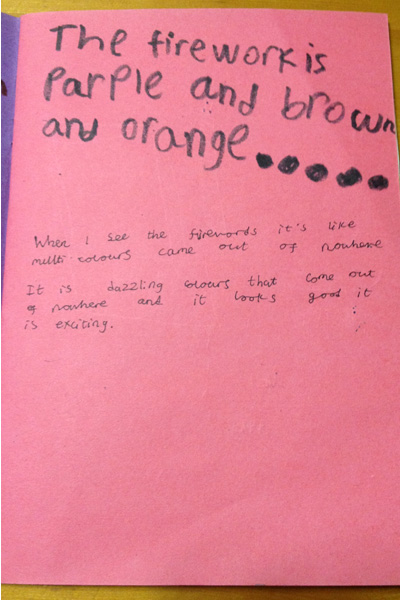 The firework is
Parple and brown
and orange.....
When I see the firewords it's like
multi colours came out of nowhere
It is dazzling colours that come out
of nowhere and it looks good it
is exciting.